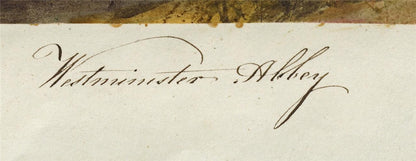 Westminister Abbey